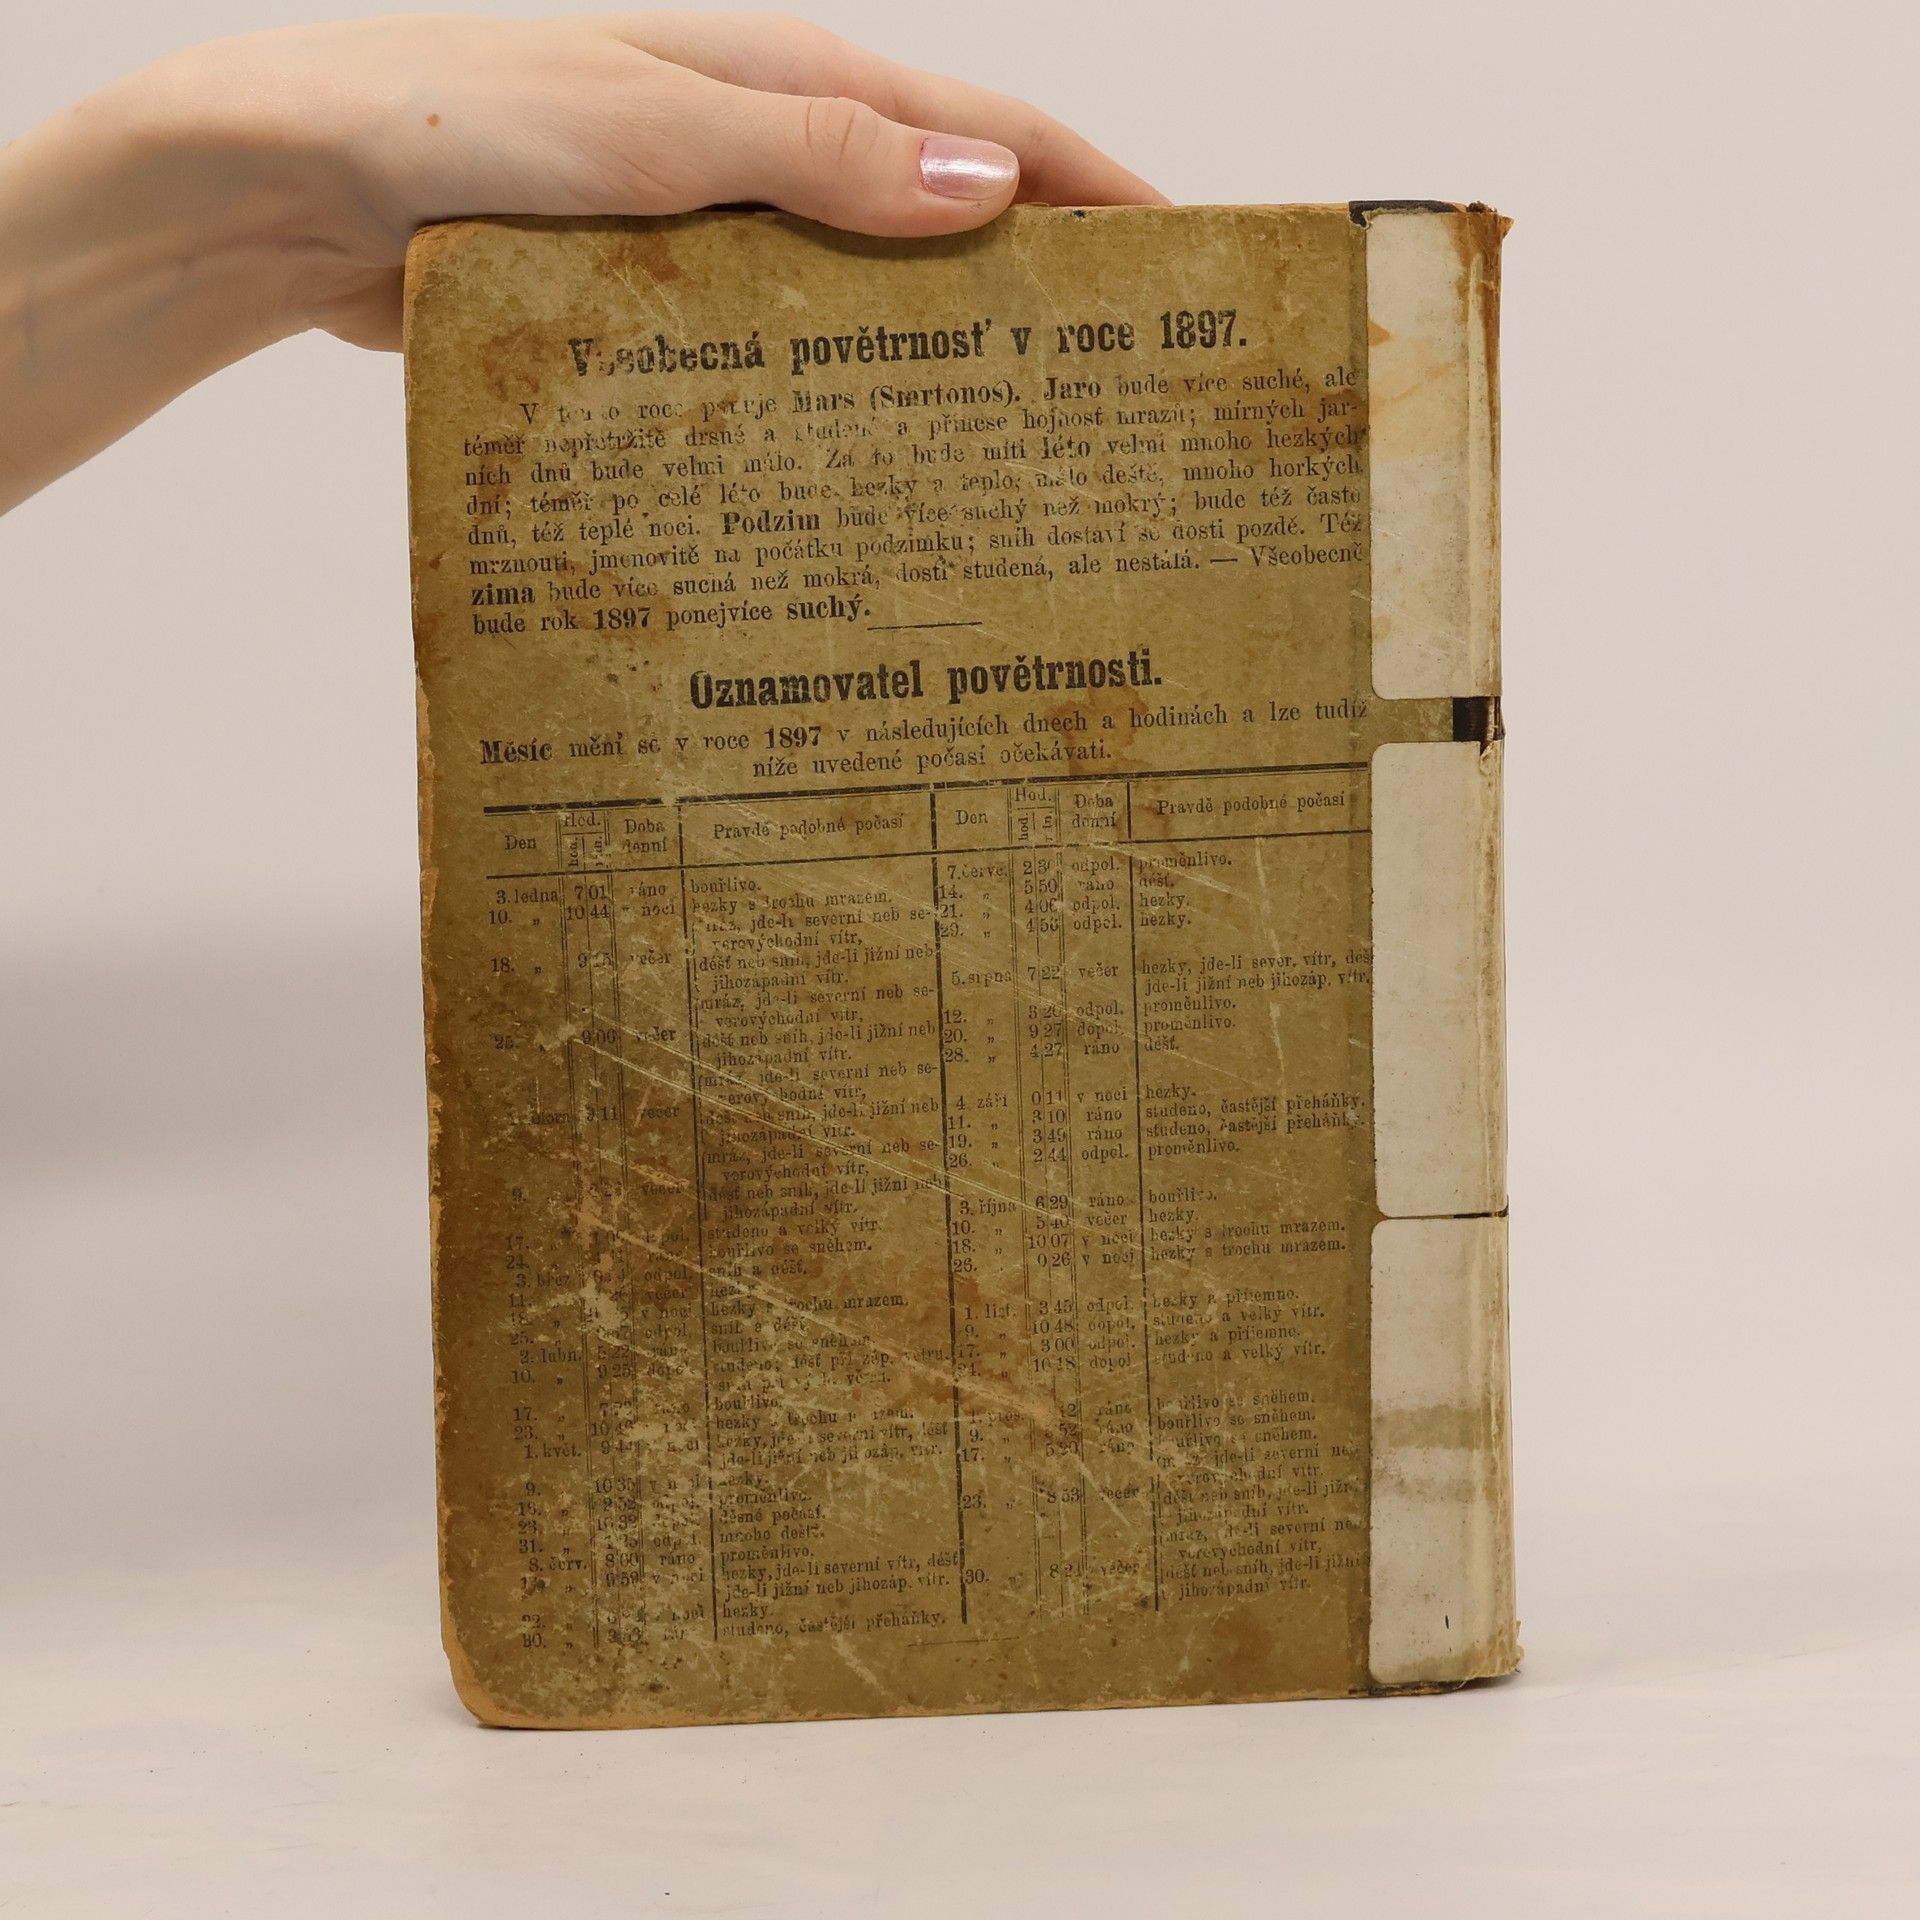 Všeobecná povětrnosť v roce 1897.
V tomto roce panuje Mars (Smrtonoš). Jaro bude více suché, ale
téměř nepřetržitě drsné a studené a přinese hojnosť mrazů; mírných jar-
ních dnů bude velmi málo. Za to bude míti léto velmi mnoho hezkých
dní; téměř po celé léto bude hezky a teplo, málo deště, mnoho horkých
dnů, též teplé noci. Podzim bude více suchý než mokrý; bude též často
mrznouti, jmenovitě na počátku podzimku; sníh dostaví se dosti pozdě. Též
zima bude více suchá než mokrá, dosti studená, ale nestálá. — Všeobecně
bude rok 1897 ponejvíce suchý.
Oznamovatel povětrnosti.
Měsíc mění se v roce 1897 v následujících dnech a hodinách a lze tudíž
níže uvedené počasí očekávati.
Den Hod. hod. min. Doba denní Pravdě podobné počasí
3. ledna 7 01 ráno bouřlivo.
10. „ 10 44 v noci hezky s trochu mrazem.
18. „ 9 15 večer mráz, jde-li severní neb se-
verovýchodní vítr,
déšť neb sníh, jde-li jižní neb
jihozápadní vítr.
25. „ 9 00 večer mráz, jde-li severní neb se-
verovýchodní vítr,
déšť neb sníh, jde-li jižní neb
jihozápadní vítr.
února 9 11 večer mráz, jde-li severní neb se-
verovýchodní vítr,
déšť neb sníh, jde-li jižní neb
jihozápadní vítr.
9. „ večer mráz, jde-li severní neb se-
verovýchodní vítr,
déšť neb sníh, jde-li jižní neb
jihozápadní vítr.
17. „ odpol. studeno a velký vítr.
24. „ ráno bouřlivo se sněhem.
3. břez. odpol. sníh a déšť.
11. „ večer hezky.
18. „ v noci hezky s trochu mrazem.
25. „ odpol. sníh a déšť.
2. dubn. 5 22 ráno bouřlivo se sněhem.
10. „ 9 25 dopol. studeno; déšť při záp. větru,
17. „ ráno bouřlivo.
23. „ 10 v noci hezky s trochu mrazem.
1. květ. 9 v noci hezky, jde-li severní vítr, déšť
jde-li jižní neb jihozáp. vítr.
9. „ 10 35 v noci hezky.
16. „ 2 52 odpol. proměnlivo.
23. „ 10 32 dopol. děsné počasí.
31. „ 1 25 odpol. mnoho deště.
8. červ. 8 00 ráno proměnlivo.
„ 9 59 v noci hezky, jde-li severní vítr, déšť
jde-li jižní neb jihozáp. vítr.
22. „ v noci hezky.
30. „ 3 53 ráno studeno, častější přeháňky.
Den Hod. hod. min. Doba denní Pravdě podobné počasí
7. červe. 2 30 odpol. proměnlivo.
14. „ 5 50 ráno déšť.
21. „ 4 06 odpol. hezky.
29. „ 4 56 odpol. hezky.
5. srpna 7 22 večer hezky, jde-li sever. vítr, déš
jde-li jižní neb jihozáp. vítr.
12. „ 3 20 odpol. proměnlivo.
20. „ 9 27 dopol. proměnlivo.
28. „ 4 27 ráno déšť.
4. září 0 11 v noci hezky.
11. „ 3 10 ráno studeno, častější přeháňky.
19. „ 3 49 ráno studeno, častější přeháňky.
26. „ 2 44 odpol. proměnlivo.
3. října 6 29 ráno bouřlivo.
10. „ 5 40 večer hezky.
18. „ 10 07 v noci hezky s trochu mrazem.
26. „ 0 26 v noci hezky s trochu mrazem.
1. list. 3 45 odpol. hezky a příjemno.
9. „ 10 48 dopol. studeno a velký vítr.
17. „ 3 00 odpol. hezky a příjemno.
24. „ 10 18 dopol studeno a velký vítr.
1. pros. 12 ráno bouřlivo se sněhem.
9. „ 52 ráno bouřlivo se sněhem.
17. „ 5 20 ráno bouřlivo se sněhem.
23. „ 8 53 večer mráz, jde-li severní neb
severovýchodní vítr.
déšť neb sníh, jde-li jižní
jihozápadní vítr.
30. „ 8 21 večer mráz, jde-li severní neb
verovýchodní vítr,
déšť neb sníh, jde-li jižní
jihozápadní vítr.